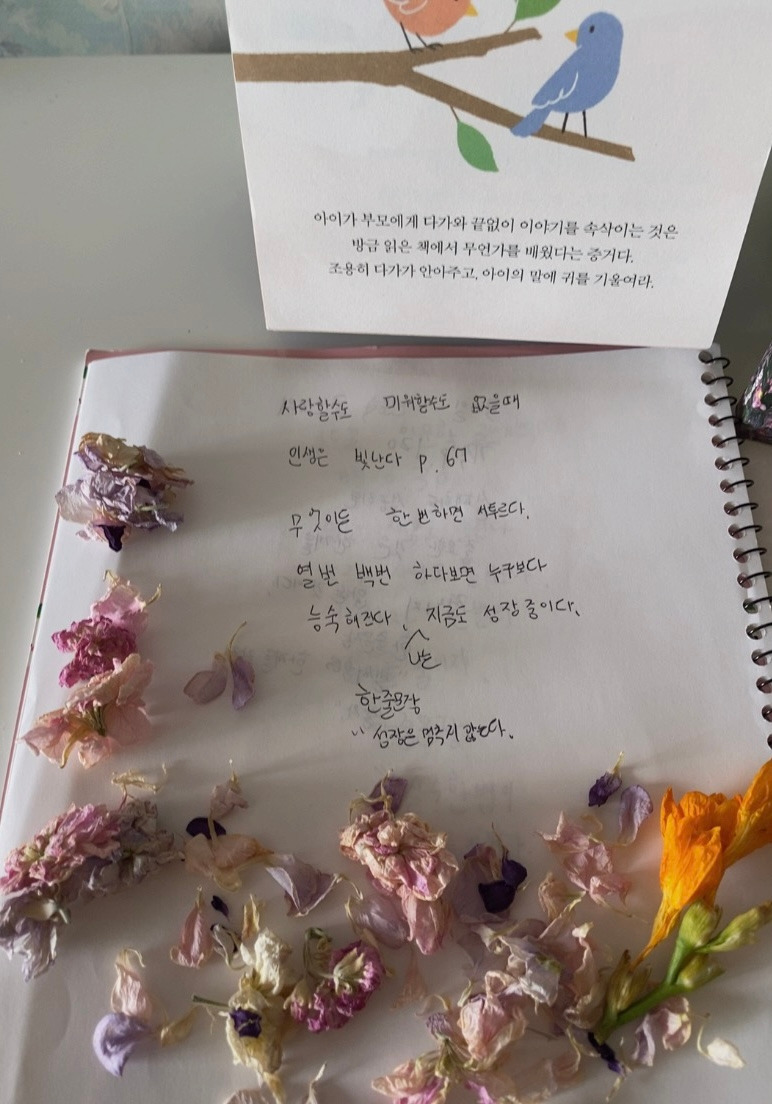 아이가 부모에게 다가와 끝없이 이야기를 속삭이는 것은
방금 읽은 책에서 무언가를 배웠다는 증거다.
조용히 다가가 안아주고, 아이의 말에 귀를 기울여라.
사랑할수도 미워할수도 없을때
인생은 빛난다 p. 67
무엇이든 한번하면 서투르다.
열번 백번 하다보면 누구보다
능숙해진다. 지금도 성장중이다.
나는
한줄문장
" 성장은 멈추지 않는다.